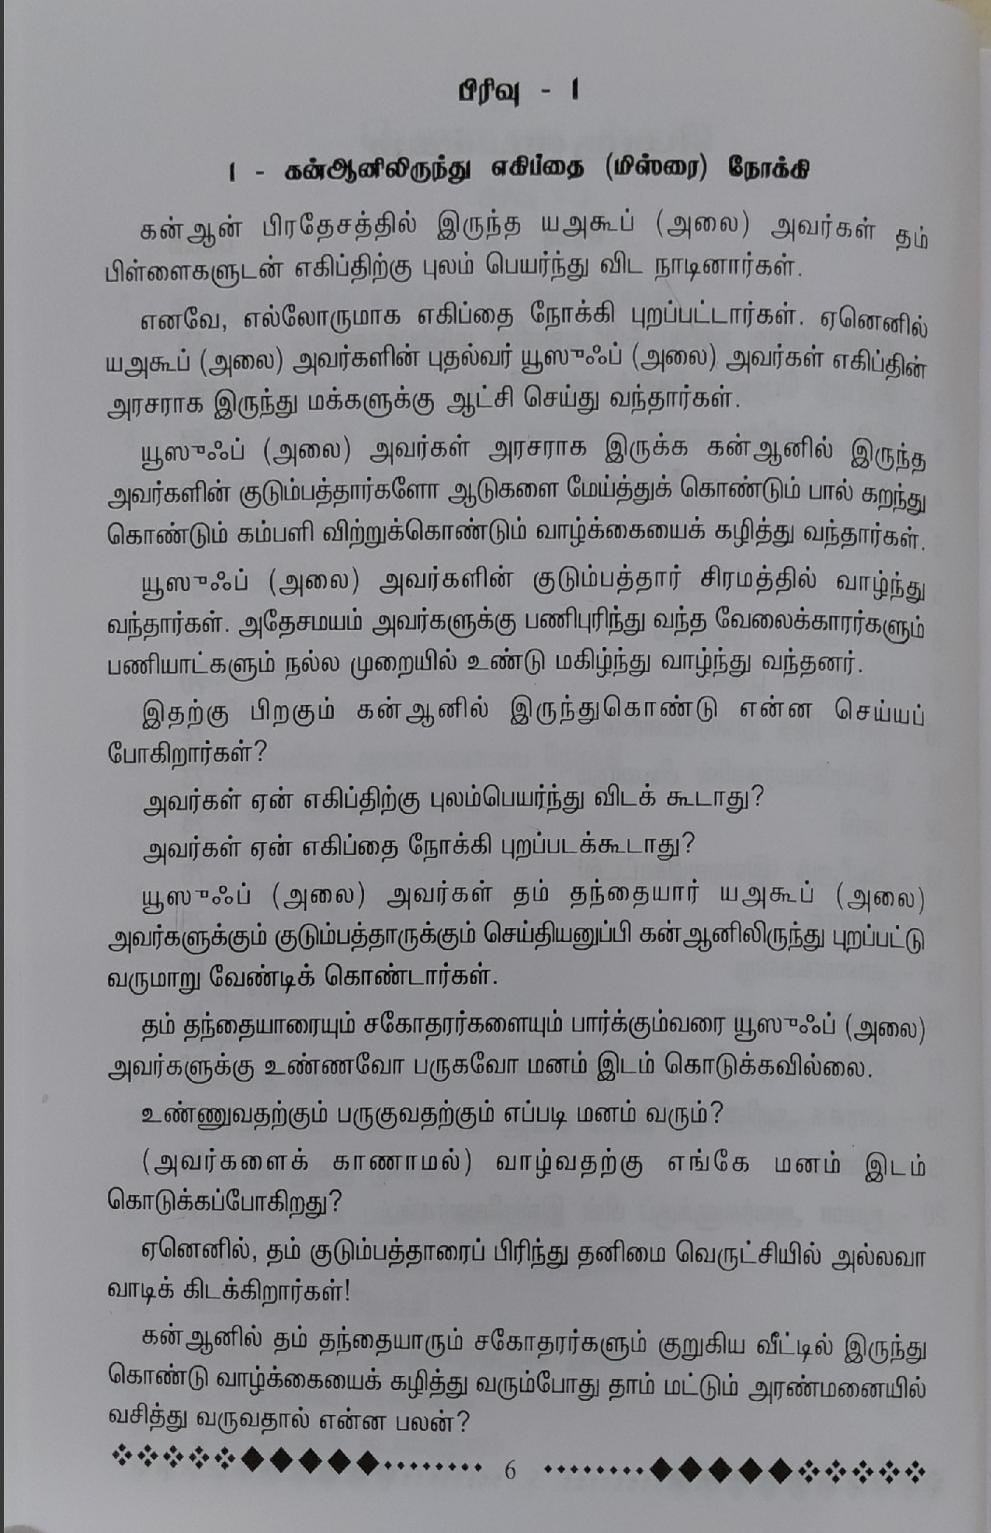 பிரிவு - 1
1 - கன்ஆனிலிருந்து எகிப்தை (மிஸ்ரை) நோக்கி
கன்ஆன் பிரதேசத்தில் இருந்த யஅகூப் (அலை) அவர்கள் தம்
பிள்ளைகளுடன் எகிப்திற்கு புலம் பெயர்ந்து விட நாடினார்கள்.
எனவே, எல்லோருமாக எகிப்தை நோக்கி புறப்பட்டார்கள். ஏனெனில்
யஅகூப் (அலை) அவர்களின் புதல்வர் யூஸுஃப் (அலை) அவர்கள் எகிப்தின்
அரசராக இருந்து மக்களுக்கு ஆட்சி செய்து வந்தார்கள்.
யூஸுஃப் (அலை) அவர்கள் அரசராக இருக்க கன்ஆனில் இருந்த
அவர்களின் குடும்பத்தார்களோ ஆடுகளை மேய்த்துக் கொண்டும் பால் கறந்து
கொண்டும் கம்பளி விற்றுக்கொண்டும் வாழ்க்கையைக் கழித்து வந்தார்கள்.
யூஸுஃப் (அலை) அவர்களின் குடும்பத்தார் சிரமத்தில் வாழ்ந்து
வந்தார்கள். அதேசமயம் அவர்களுக்கு பணிபுரிந்து வந்த வேலைக்காரர்களும்
பணியாட்களும் நல்ல முறையில் உண்டு மகிழ்ந்து வாழ்ந்து வந்தனர்.
இதற்கு பிறகும் கன்ஆனில் இருந்துகொண்டு என்ன செய்யப்
போகிறார்கள்?
அவர்கள் ஏன் எகிப்திற்கு புலம்பெயர்ந்து விடக் கூடாது?
அவர்கள் ஏன் எகிப்தை நோக்கி புறப்படக்கூடாது?
யூஸுஃப் (அலை) அவர்கள் தம் தந்தையார் யஅகூப் (அலை)
அவர்களுக்கும் குடும்பத்தாருக்கும் செய்தியனுப்பி கன்ஆனிலிருந்து புறப்பட்டு
வருமாறு வேண்டிக் கொண்டார்கள்.
தம் தந்தையாரையும் சகோதரர்களையும் பார்க்கும்வரை யூஸுஃப் (அலை)
அவர்களுக்கு உண்ணவோ பருகவோ மனம் இடம் கொடுக்கவில்லை.
உண்ணுவதற்கும் பருகுவதற்கும் எப்படி மனம் வரும்?
(அவர்களைக் காணாமல்) வாழ்வதற்கு எங்கே மனம் இடம்
கொடுக்கப்போகிறது?
ஏனெனில், தம் குடும்பத்தாரைப் பிரிந்து தனிமை வெருட்சியில் அல்லவா
வாடிக் கிடக்கிறார்கள்!
கன்ஆனில் தம் தந்தையாரும் சகோதரர்களும் குறுகிய வீட்டில் இருந்து
கொண்டு வாழ்க்கையைக் கழித்து வரும்போது தாம் மட்டும் அரண்மனையில்
வசித்து வருவதால் என்ன பலன்?
6